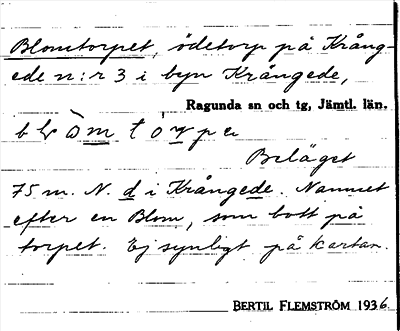 Blomtorpet, ödetorp på Krång-
ede n:r 3 i byn Krångede,
Ragunda sn och tg, Jämtl. län.
Beläget
75 m. N. d i Krångede. Namnet
efter en Blom, som bott på
torpet. Ej synligt på kartan.
BERTIL FLEMSTRÖM 1936.